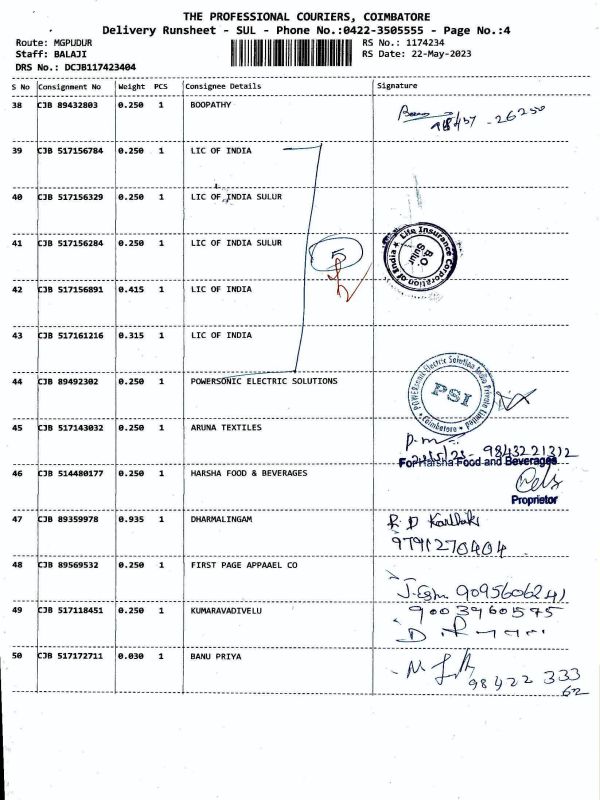 THE PROFESSIONAL COURIERS, COIMBATORE
Delivery Runsheet - SUL - Phone No.:0422-3505555 - Page No.:4
Route: MGPUDUR RS No.: 1174234
Staff: BALAJI RS Date: 22-May-2023
DRS No.: DCJB117423404
S No Consignment No Weight PCS Consignee Details Signature
38 CJB 89432803 0.250 1 BOOPATHY
98437 -26250
39 CJB 517156784 0.250 1 LIC OF INDIA
40 CJB 517156329 0.250 1 LIC OF INDIA SULUR
41 CJB 517156284 0.250 1 LIC OF INDIA SULUR
5
Life Insurance Corporation of India ★
B.O.
Sulur
42 CJB 517156891 0.415 1 LIC OF INDIA
43 CJB 517161216 0.315 1 LIC OF INDIA
44 CJB 89492302 0.250 1 POWERSONIC ELECTRIC SOLUTIONS
POWERsonic Electric Solution India Private Limited
PSI
* Coimbatore *
45 CJB 517143032 0.250 1 ARUNA TEXTILES
9843221312
46 CJB 514480177 0.250 1 HARSHA FOOD & BEVERAGES
For Harsha Food and Beverages
Proprietor
47 CJB 89359978 0.935 1 DHARMALINGAM
R.D Karthik
9791270404
48 CJB 89569532 0.250 1 FIRST PAGE APPAAEL CO
9095606241
49 CJB 517118451 0.250 1 KUMARAVADIVELU
9003960595
50 CJB 517172711 0.030 1 BANU PRIYA
98422 333
62